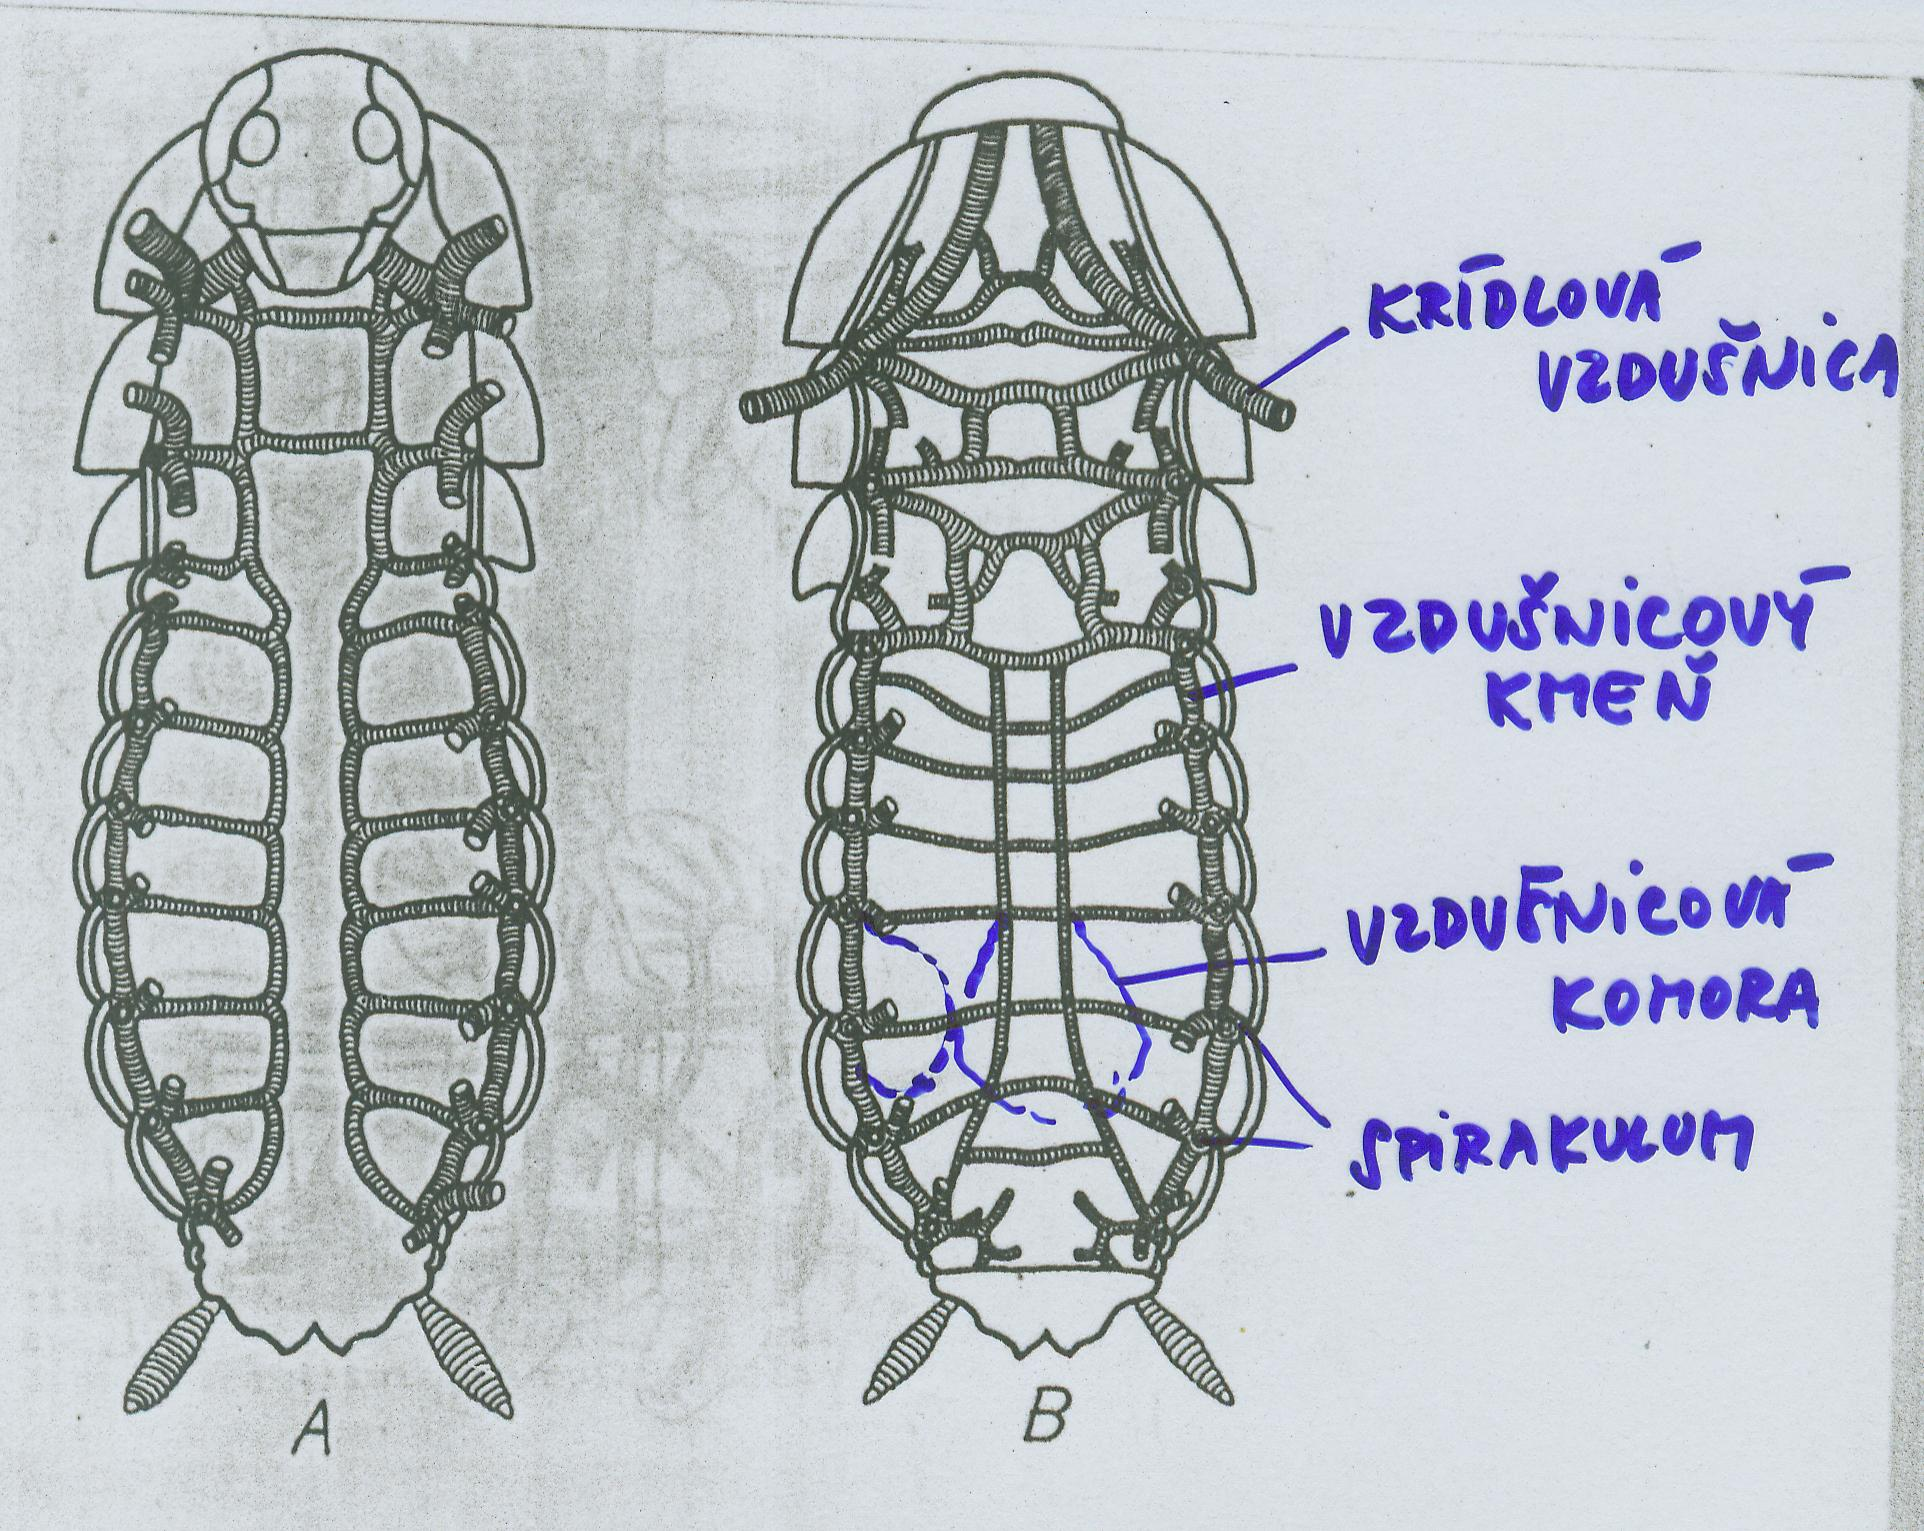 KRÍDLOVÁ
VZDUŠNiCA
VZDUŠNiCOVÝ
KMEŇ
VZDUŠNiCOVÁ
KOMORA
SPiRAKULUM
A
B